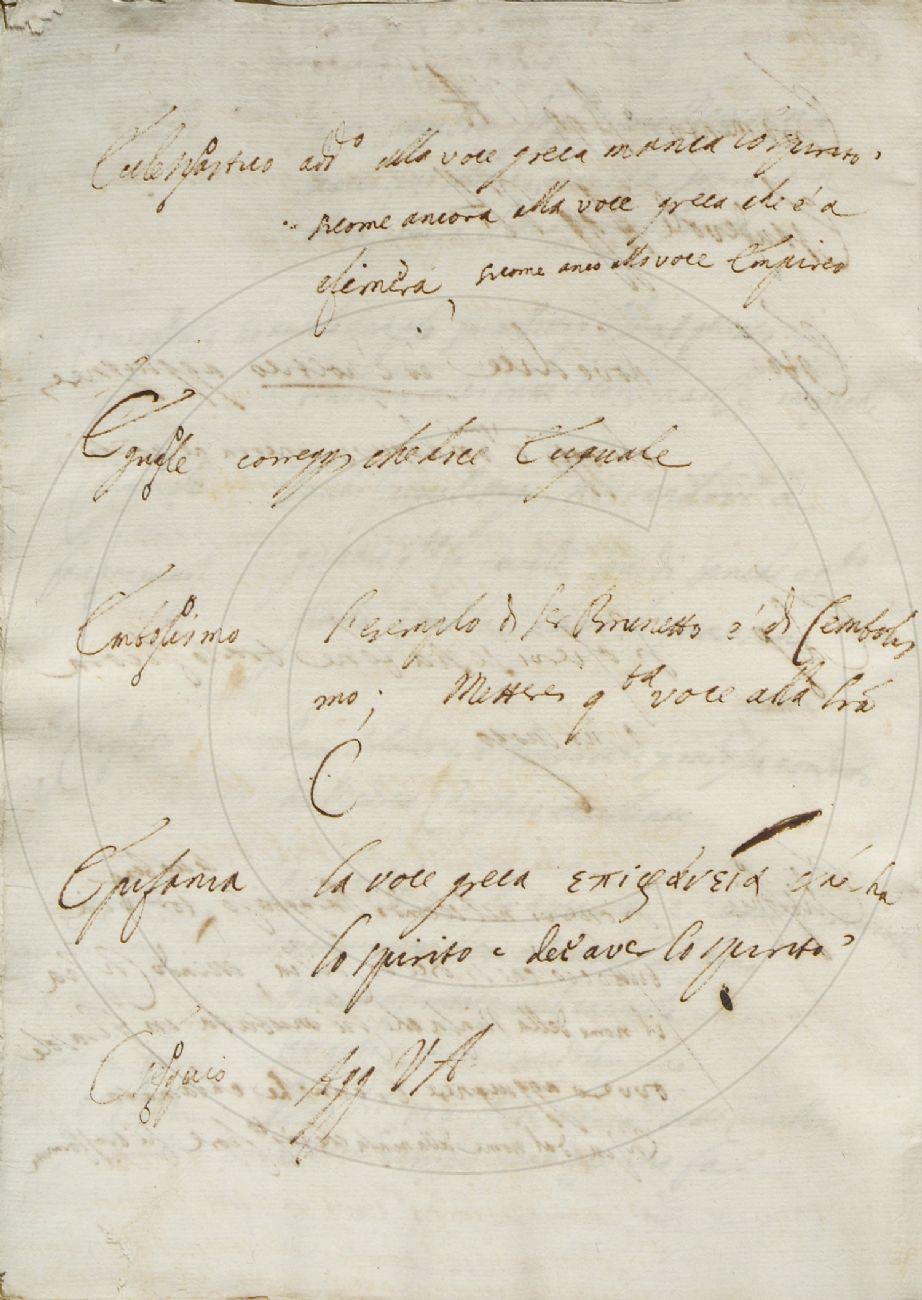 alla voce greca manca lo spirito
sicome ancora alla voce greca che è a
efimera, sicome anco alla voce Empireo
Eguale correggi che dice Euguale
Embolismo l'esempio di Ser Brunetto è di Cembolis
mo; Mettere q.ta voce alla
C
Epifania la voce greca επιφάνεια ha
lo spirito e dee aver lo spirito
Agg